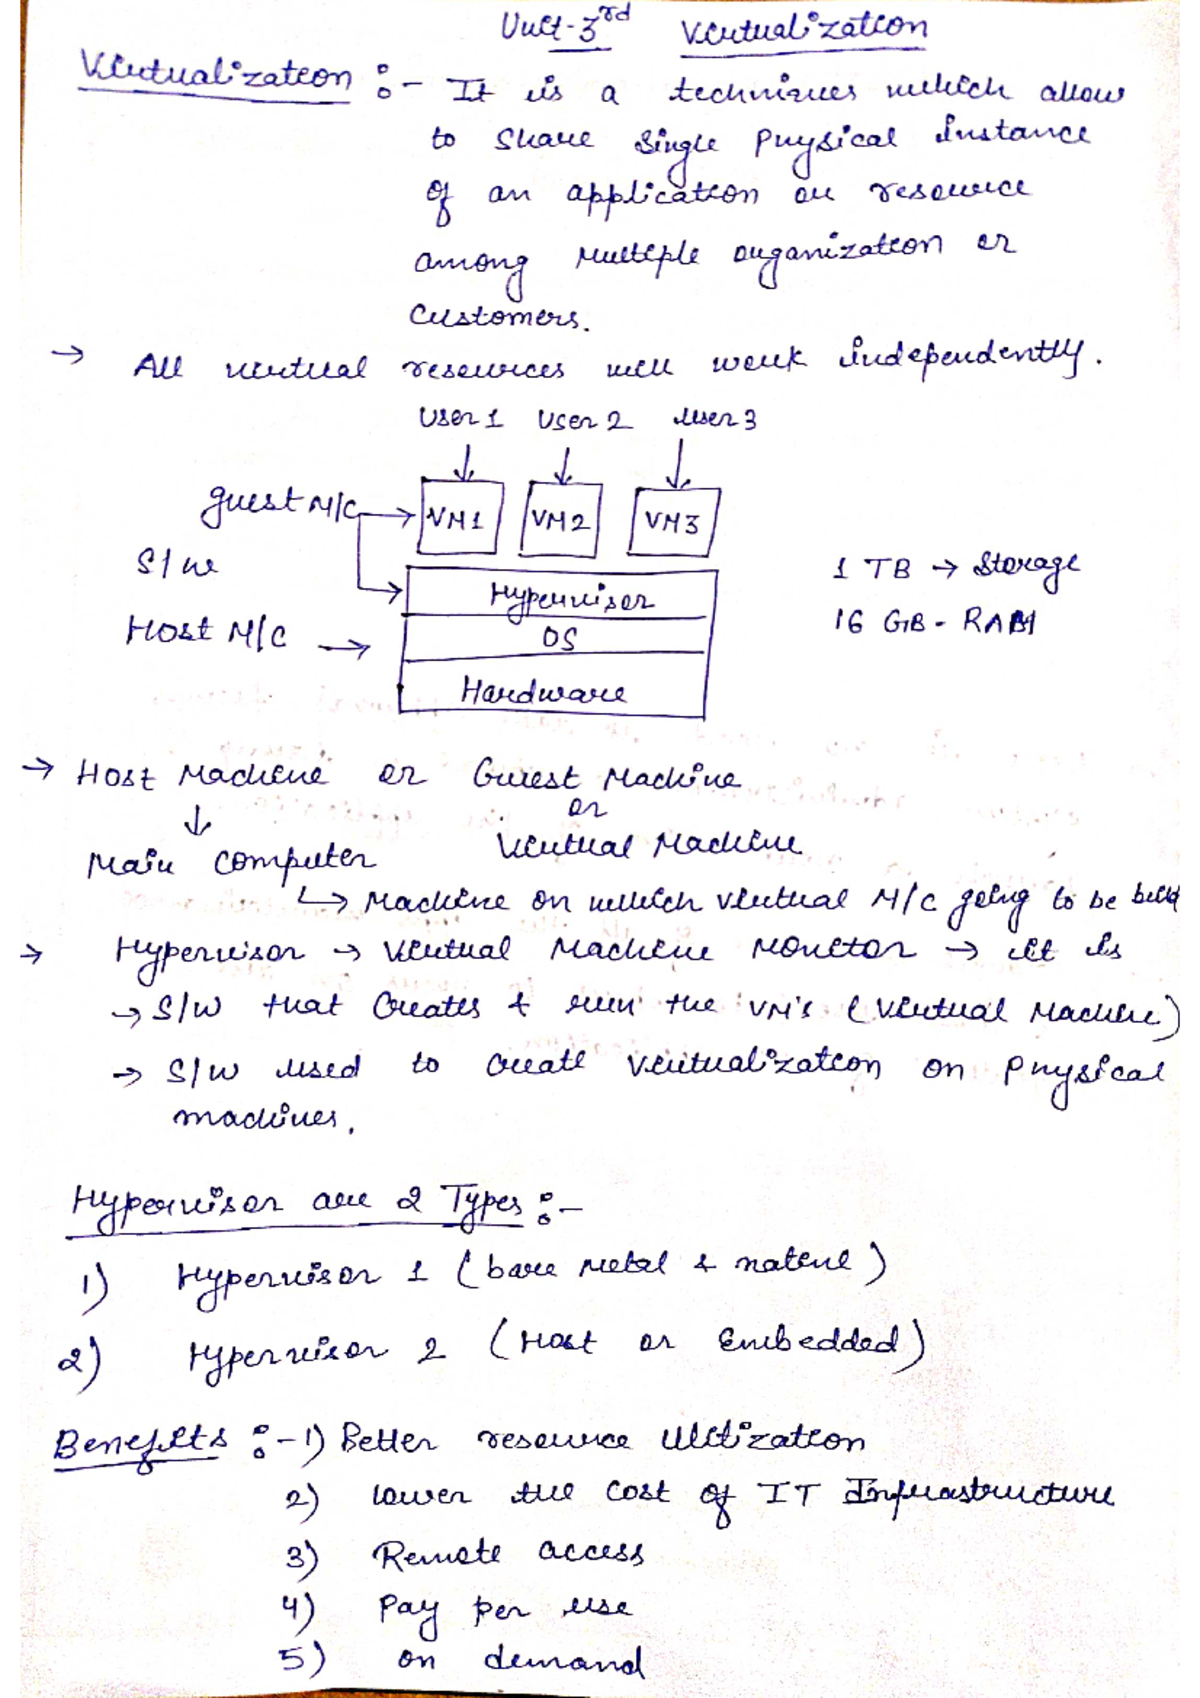 Unit-3rd Virtualization
Virtualization :- It is a techniques which allow
to share single physical instance
of an application or resource
among multiple organization or
customers.
→ All virtual resources will work independently.
User 1 User 2 User 3
guest M/C → VM1 VM2 VM3
S/w
Hypervisor
1 TB → Storage
Host M/C → OS
16 GB - RAM
Hardware
→ Host Machine or Guest Machine
↓ or
Main computer Virtual Machine
↳ Machine on which virtual M/c going to be build
→ Hypervisor → Virtual Machine Monitor → it is
→ S/W that creates & run the VM's (Virtual Machine)
→ S/W used to create virtualization on physical
machines.
Hypervisor are 2 Types :-
1) Hypervisor 1 (bare metal & native)
2) Hypervisor 2 (Host or Embedded)
Benefits :- 1) Better resource Utilization
2) lower the cost of IT Infrastructure
3) Remote access
4) Pay per use
5) on demand